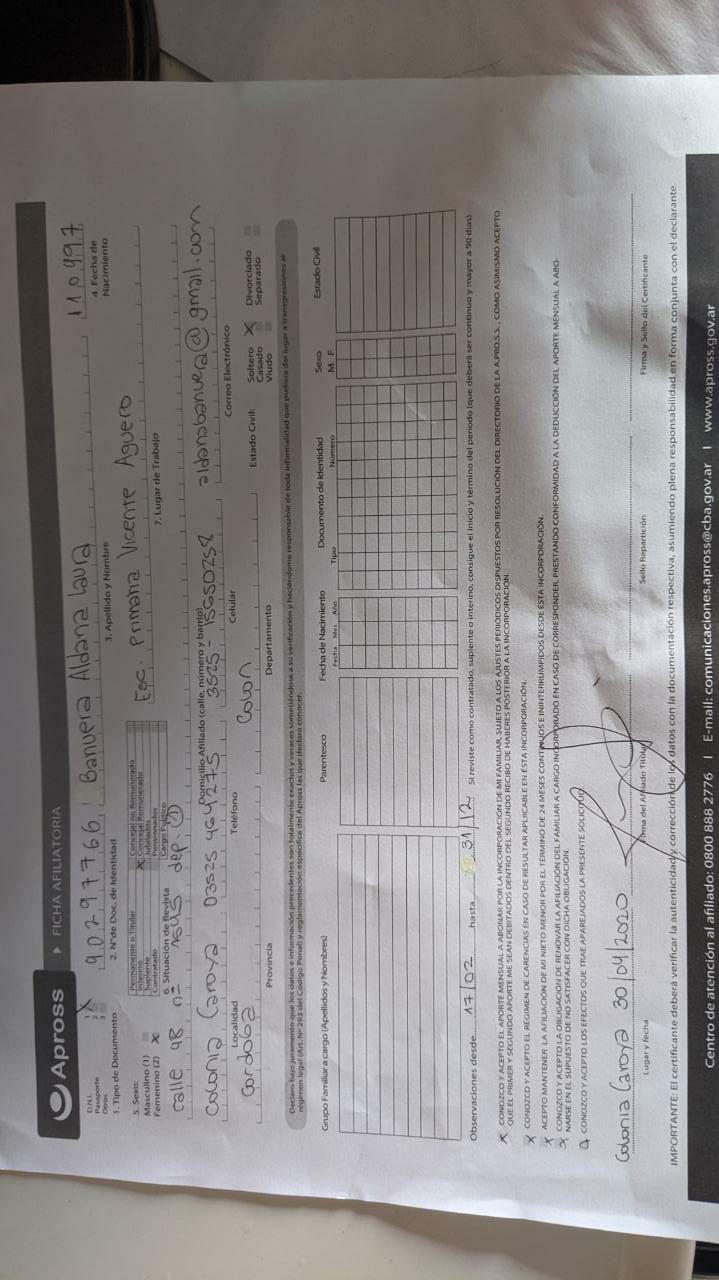 Apross ▸ FICHA AFILIATORIA
D.N.I. 1 X
Pasaporte 2
Otros 3
40297766 Banuera Aldana Laura 110497
1. Tipo de Documento 2. N°de Doc. de Identidad 3. Apellido y Nombre 4. Fecha de Nacimiento
5. Sexo:
Masculino (1)
Femenino (2) X
Permanente o Titular
Interino
Suplente
Contratado
Concejal no Remunerado
Concejal Remunerado
Jubilados
Pensionados
Cargo Político
Esc. primaria Vicente Aguero
6. Situación de Revista 7. Lugar de Trabajo
calle 48 n= 1645 dep. 1
Domicilio Afiliado (calle, número y barrio)
Colonia Caroya 03525 464275 3525 15650258 aldanabanuera@gmail.com
Localidad Teléfono Celular Correo Electrónico
Cordoba Colon
Provincia Departamento
Estado Civil: Soltero X Divorciado
Casado Separado
Viudo
Declaro bajo juramento que los datos e información precedentes son totalmente exactos y veraces sometiéndose a su verificación y haciéndome responsable de toda informalidad que pudiera dar lugar a transgresiones al
régimen legal (Art. N° 293 del Código Penal) y reglamentación específica del Apross las que declaro conocer.
Grupo Familiar a cargo (Apellidos y Nombres) Parentesco Fecha de Nacimiento Documento de Identidad Sexo Estado Civil
Fecha Mes Año Tipo Número M F
Observaciones desde 17/02 hasta 31/12 Si reviste como contratado, suplente o interino, consigue el inicio y término del período (que deberá ser continuo y mayor a 90 días)
X CONOZCO Y ACEPTO EL APORTE MENSUAL A ABONAR POR LA INCORPORACIÓN DE MI FAMILIAR, SUJETO A LOS AJUSTES PERIÓDICOS DISPUESTOS POR RESOLUCIÓN DEL DIRECTORIO DE LA A.PRO.S.S., COMO ASIMISMO ACEPTO
QUE EL PRIMER Y SEGUNDO APORTE ME SEAN DEBITADOS DENTRO DEL SEGUNDO RECIBO DE HABERES POSTERIOR A LA INCORPORACIÓN.
X CONOZCO Y ACEPTO EL RÉGIMEN DE CARENCIAS EN CASO DE RESULTAR APLICABLE EN ÉSTA INCORPORACIÓN.
X ACEPTO MANTENER LA AFILIACIÓN DE MI NIETO MENOR POR EL TÉRMINO DE 24 MESES CONTINUOS E ININTERRUMPIDOS DESDE ÉSTA INCORPORACIÓN.
X CONOZCO Y ACEPTO LA OBLIGACIÓN DE RENOVAR LA AFILIACIÓN DEL FAMILIAR A CARGO INCORPORADO EN CASO DE CORRESPONDER, PRESTANDO CONFORMIDAD A LA DEDUCCIÓN DEL APORTE MENSUAL A ABO-
NARSE EN EL SUPUESTO DE NO SATISFACER CON DICHA OBLIGACIÓN.
CONOZCO Y ACEPTO LOS EFECTOS QUE TRAE APAREJADOS LA PRESENTE SOLICITUD
Colonia Caroya 30/04/2020
Lugar y fecha Firma del Afiliado Titular Sello Repartición Firma y Sello del Certificante
IMPORTANTE: El certificante deberá verificar la autenticidad y corrección de los datos con la documentación respectiva, asumiendo plena responsabilidad en forma conjunta con el declarante.
Centro de atención al afiliado: 0800 888 2776 | E-mail: comunicaciones.apross@cba.gov.ar | www.apross.gov.ar